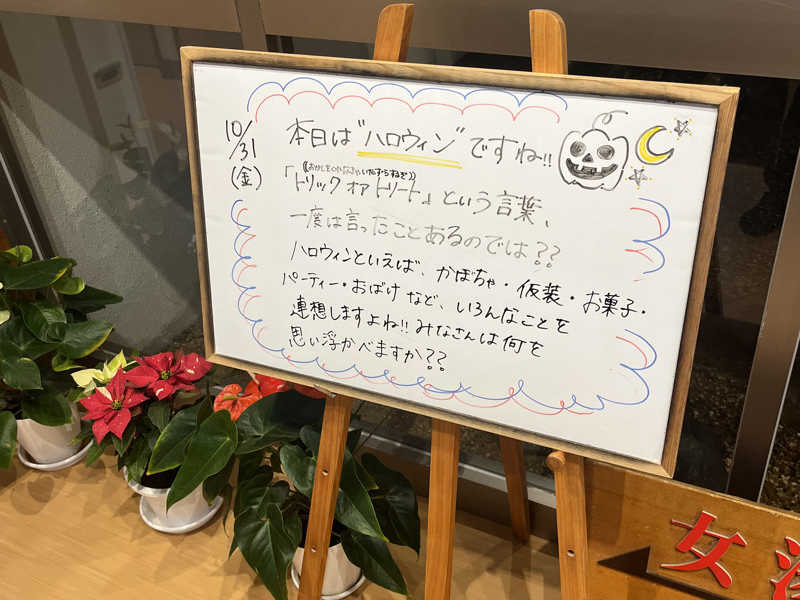 10/31
(金)
本日は"ハロウィン"ですね!!
((おかしをくれなきゃいたずらするぞ))
「トリック オア トリート」という言葉、
一度は言ったことあるのでは??
ハロウィンといえば、かぼちゃ・仮装・お菓子・
パーティー・おばけ など、いろんなことを
連想しますよね!! みなさんは何を
思い浮かべますか??
女